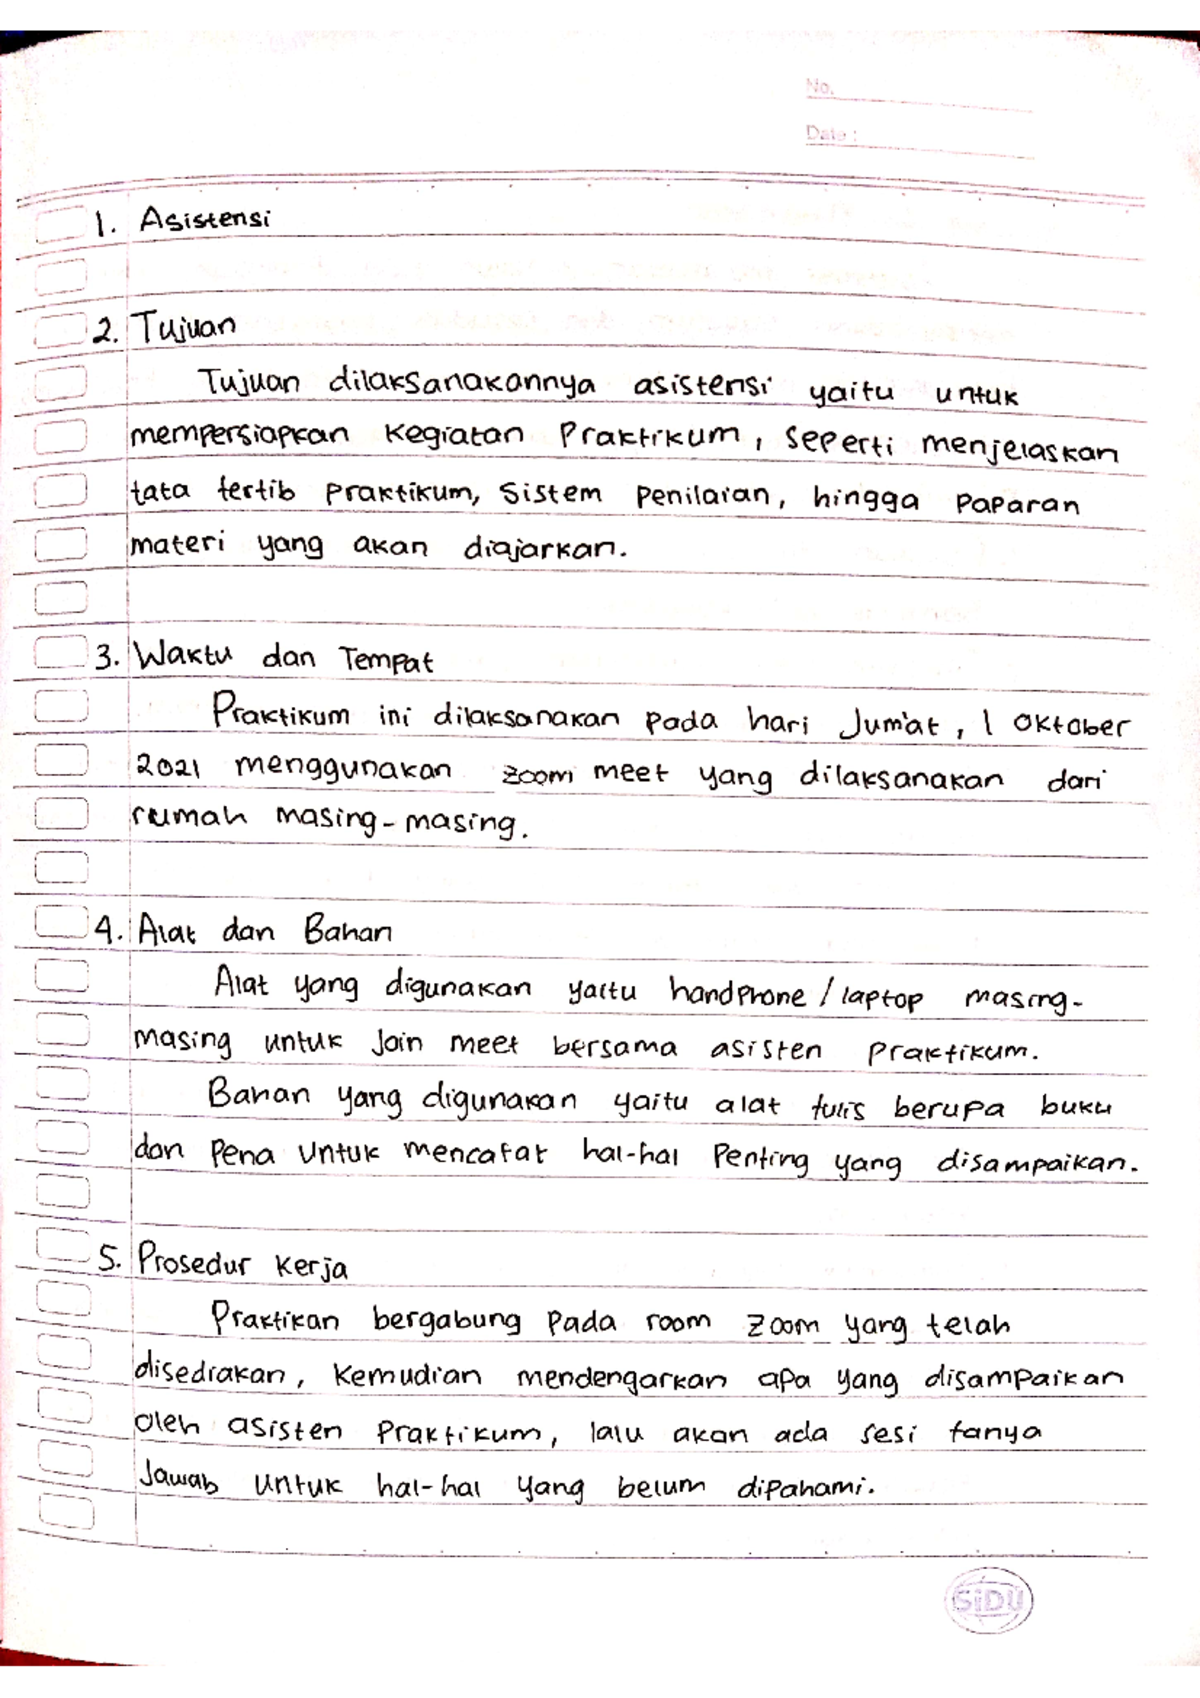 No.
Date :
1. Asistensi
2. Tujuan
Tujuan dilaksanakannya asistensi yaitu untuk
mempersiapkan kegiatan Praktikum, seperti menjelaskan
tata tertib praktikum, sistem penilaian, hingga paparan
materi yang akan diajarkan.
3. Waktu dan Tempat
Praktikum ini dilaksanakan pada hari Jum'at, 1 Oktober
2021 menggunakan zoom meet yang dilaksanakan dari
rumah masing-masing.
4. Alat dan Bahan
Alat yang digunakan yaitu handphone/laptop masing-
masing untuk join meet bersama asisten praktikum.
Bahan yang digunakan yaitu alat tulis berupa buku
dan pena untuk mencatat hal-hal penting yang disampaikan.
5. Prosedur Kerja
Praktikan bergabung pada room zoom yang telah
disediakan, kemudian mendengarkan apa yang disampaikan
oleh asisten praktikum, lalu akan ada sesi tanya
jawab untuk hal-hal yang belum dipahami.
SiDU